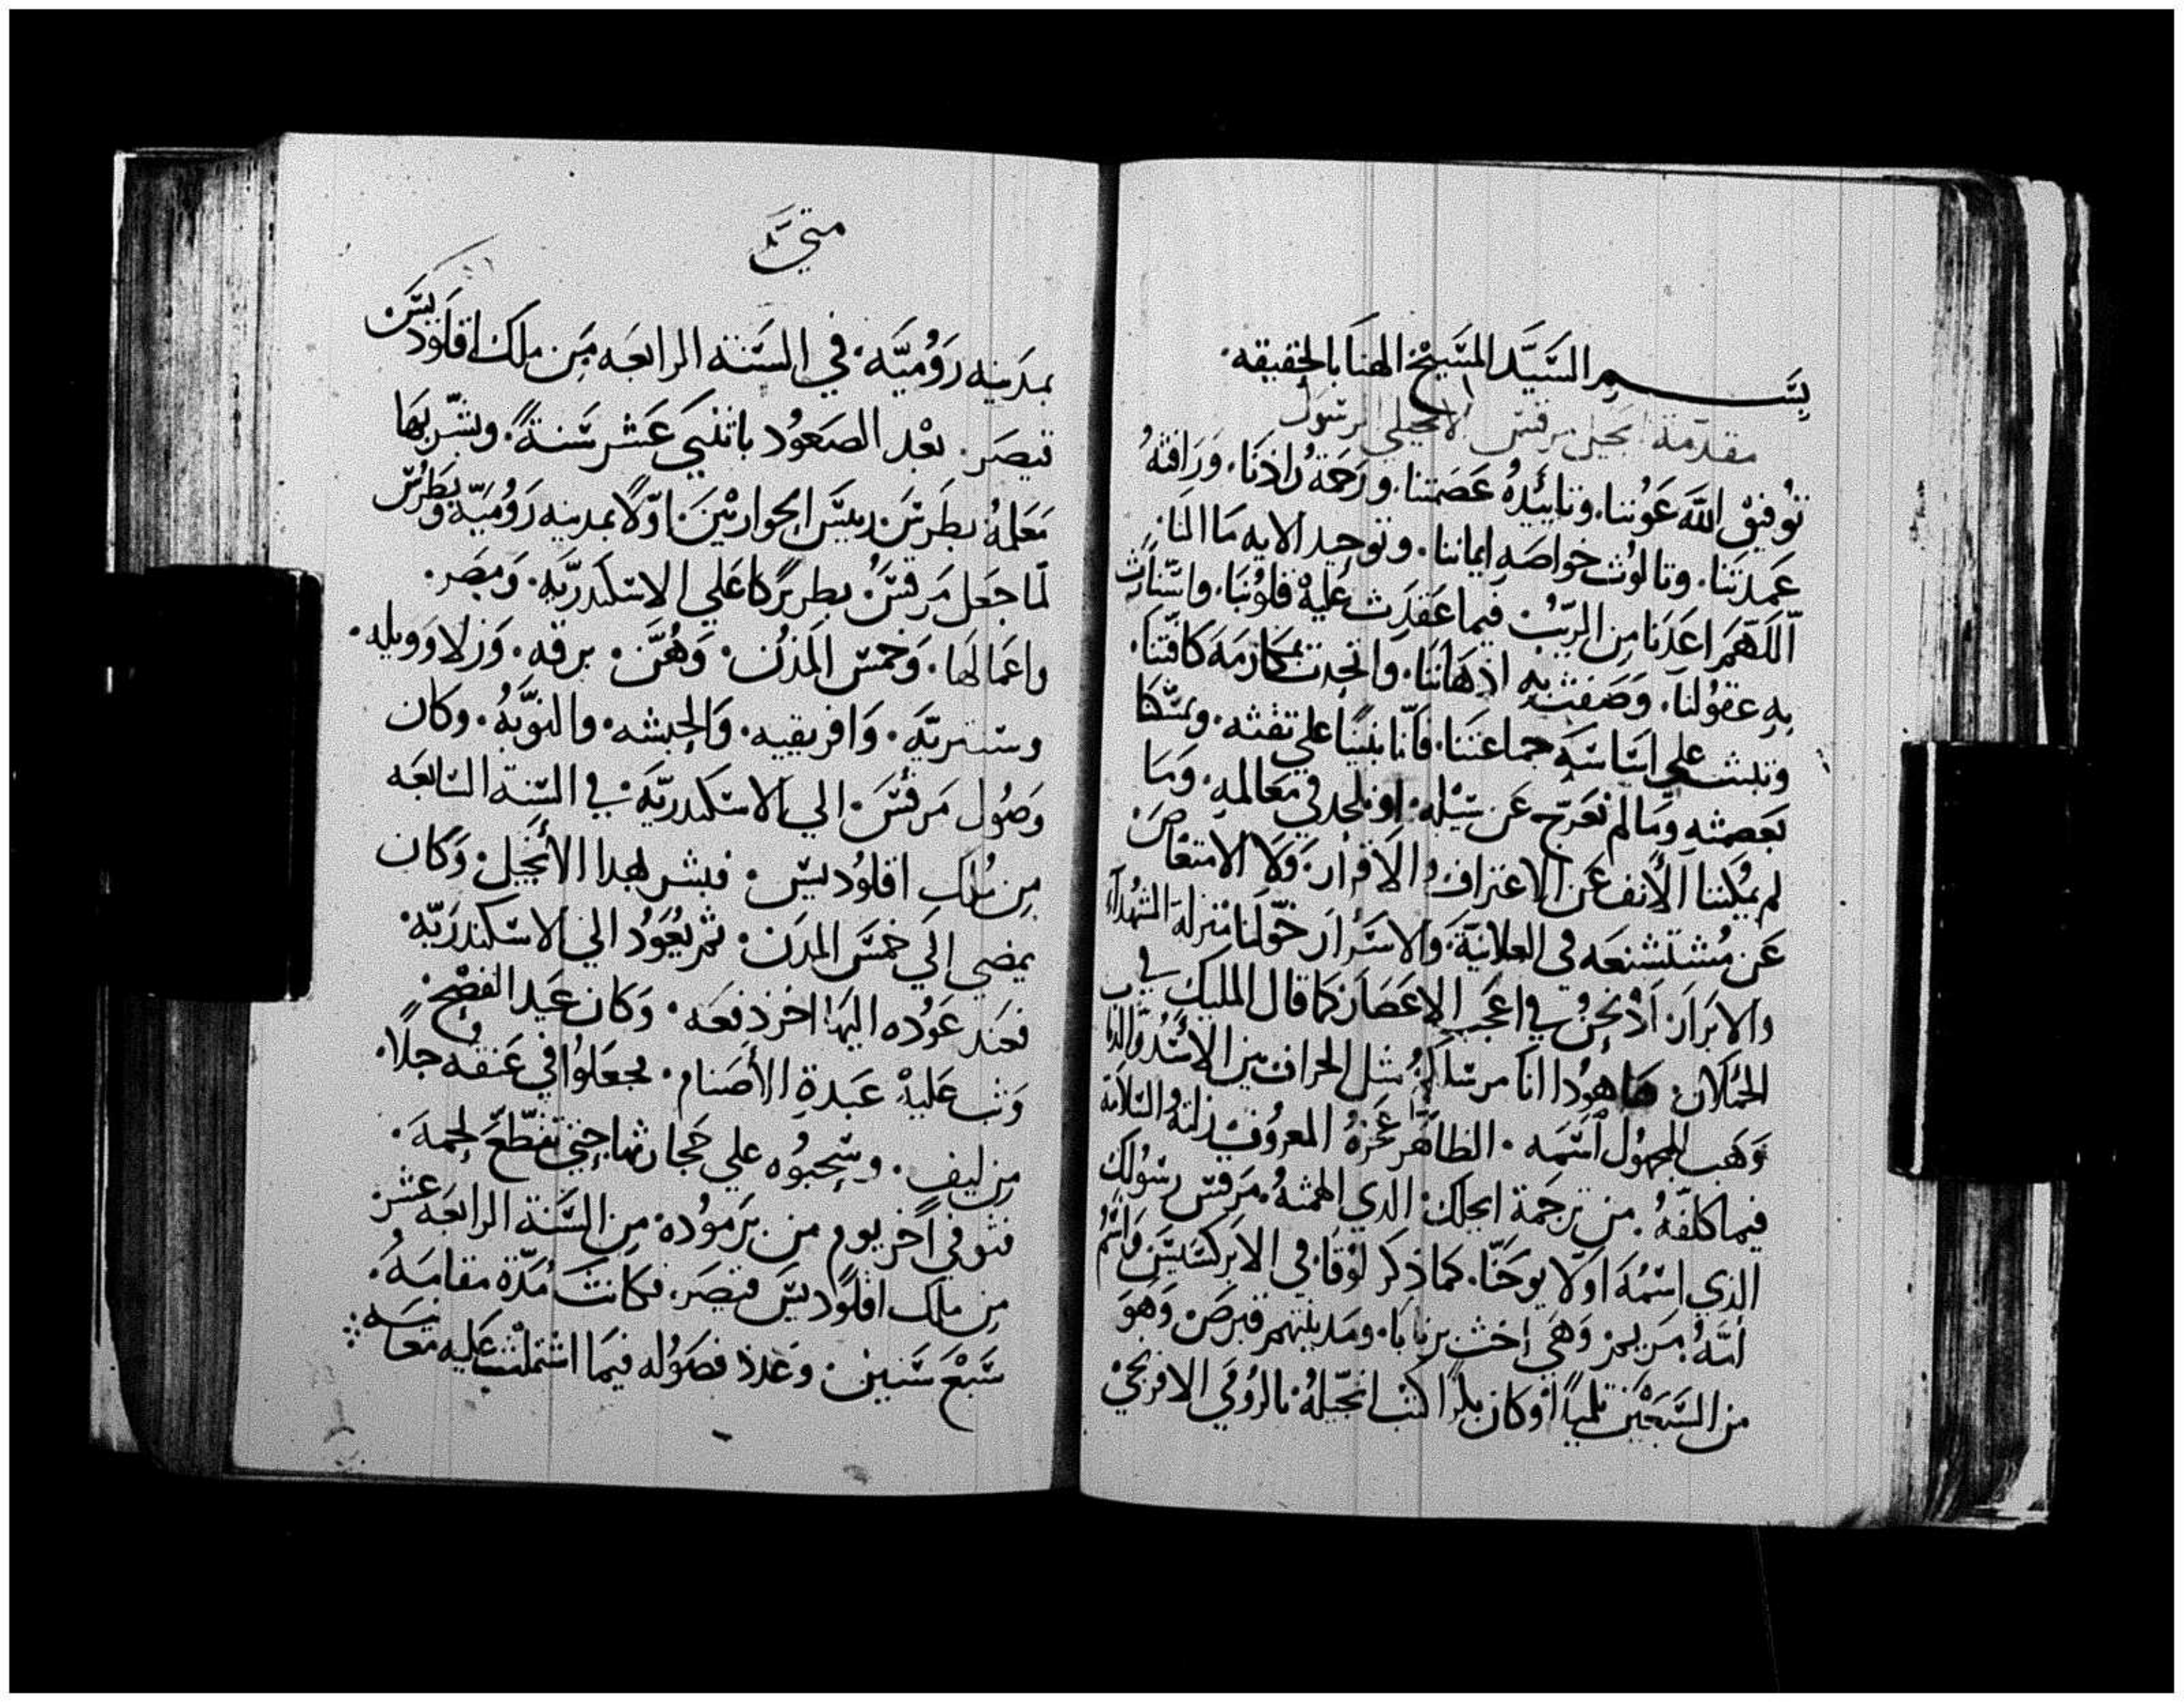 بسم السَيَد المسَيحْ الهنا بالحقيقه.
مقدمة انجيل مرقس الانجيلي الرسول
توُفيق اللَّه عَوُننا. وتاييَدهُ عَصَمتنا. ورَحَمَة رُادَنا. وَرَافتهُ
عَمدتنا. وتالوُث خواصَه ايماننا. وتوحيد الايه مَا النا.
اللَهَمَ اعَدَنا مِن الريبُ فيما عَقدَت عَليهْ قلوُبَنا. واستنارَت
بهِ عقوُلنا. وَصَفت بهِ اذهَاننَا. واتحدت بمكارَمَه كافَتنا.
وتبثت علي اسَاسَهِ جماعَتنا. فانّا بنينا علي تقثه. وتمسَكنا
بعَصمته ومَا لم نعَرج عَن سَبيْله. او نلحد في مَعَالمهِ. وَمَا
لم يمُكننا الأنف عَن الاعتراف والاقرار. وَلا الامتعَاصَ
عَن مُسَتشنعَه في العلانيَة. والاسَرارَ خوّلنا مَنزلة الشهُدَآء
والابرَار. اذْ نحَنُ في اعَجَب الاعَصَار. كما قال المليك في
الحملان. هاهوُدا انا مرسَلكمُ مثل الخراف بين الاسُدُ والدياب
وَهَب المجهوُل اسَمه. الظاهَر عجَزهُ المعروُف زلتهُ السَلامَة
فيما كلفهُ. من ترجَمة انجيلك الدي الهمتهُ مَرقس رسَوُلك
الذي اسَمُهَ اوَلا يوحَنّا. كما ذكرَ لوُقا. في الابركسَيسَ واسَمُ
امَهُ. مَريم. وَهَي اخت برنابا. ومَدينتهم قبرصَ. وَهوَ
من السَبعَيْن تلميدًا وكان كتب انجيلهُ. بالروُمي الافرنجي
متي
بمدَينه رَوُميَّه. في السَنة الرابعَه مِن ملك اقلوَديسَ.
قيصَر. بعْد الصَعوُد باثني عَشر سَنةً. وبشّر بهَا
مَعَلمهُ بطرسَ. رييسَ الحواريْينَ. اوّلًا بمدينه رَوُميَه وَبَطرُس
لمّا جعَل مَرقسَ. بطريركًا عَلي الاسَكندَريَهِ. وَمِصَر.
واعَمالهَا. وَخمسَ المدُن. وَهُنَّ. برقه. وَزلا وَويله.
وسنتريّه. وَافريقيه. وَالحبشه. والنوَّبَهُ. وكان
وَصوُل مَرقسَ. الي الاسَكندريّهَ. في السَنة السَابعَه
مِن مُلكِ اقلوُديسَ. فبشر بهدا الأنجيل. وَكان
يمضي الي خمسَ المدَن. ثم يعُوَدُ الي الاسَكندرَيّه.
فعَند عَوُده اليهَا اخر دفعَه. وَكان عَيد الفصْح.
وَثب عَليهْ عَبَدة الأصَنام. وجعَلوُا في عَنقهِ حبلًا.
مِن ليف. وسَحبوُه علي حَجارتها حتي تقطَعَ لحمهَ.
فتوفي اَخر يوم من برَموُده. مِن السَّنة الرابعَه عَشر
مِن ملك اقلوُديسَ قيصَر. فكانت مُدّة مقامهَ.
سَبْعَ سَنين. وَعَدد فصَوُله فيمَا اشتملت عَليه مَعَانيه